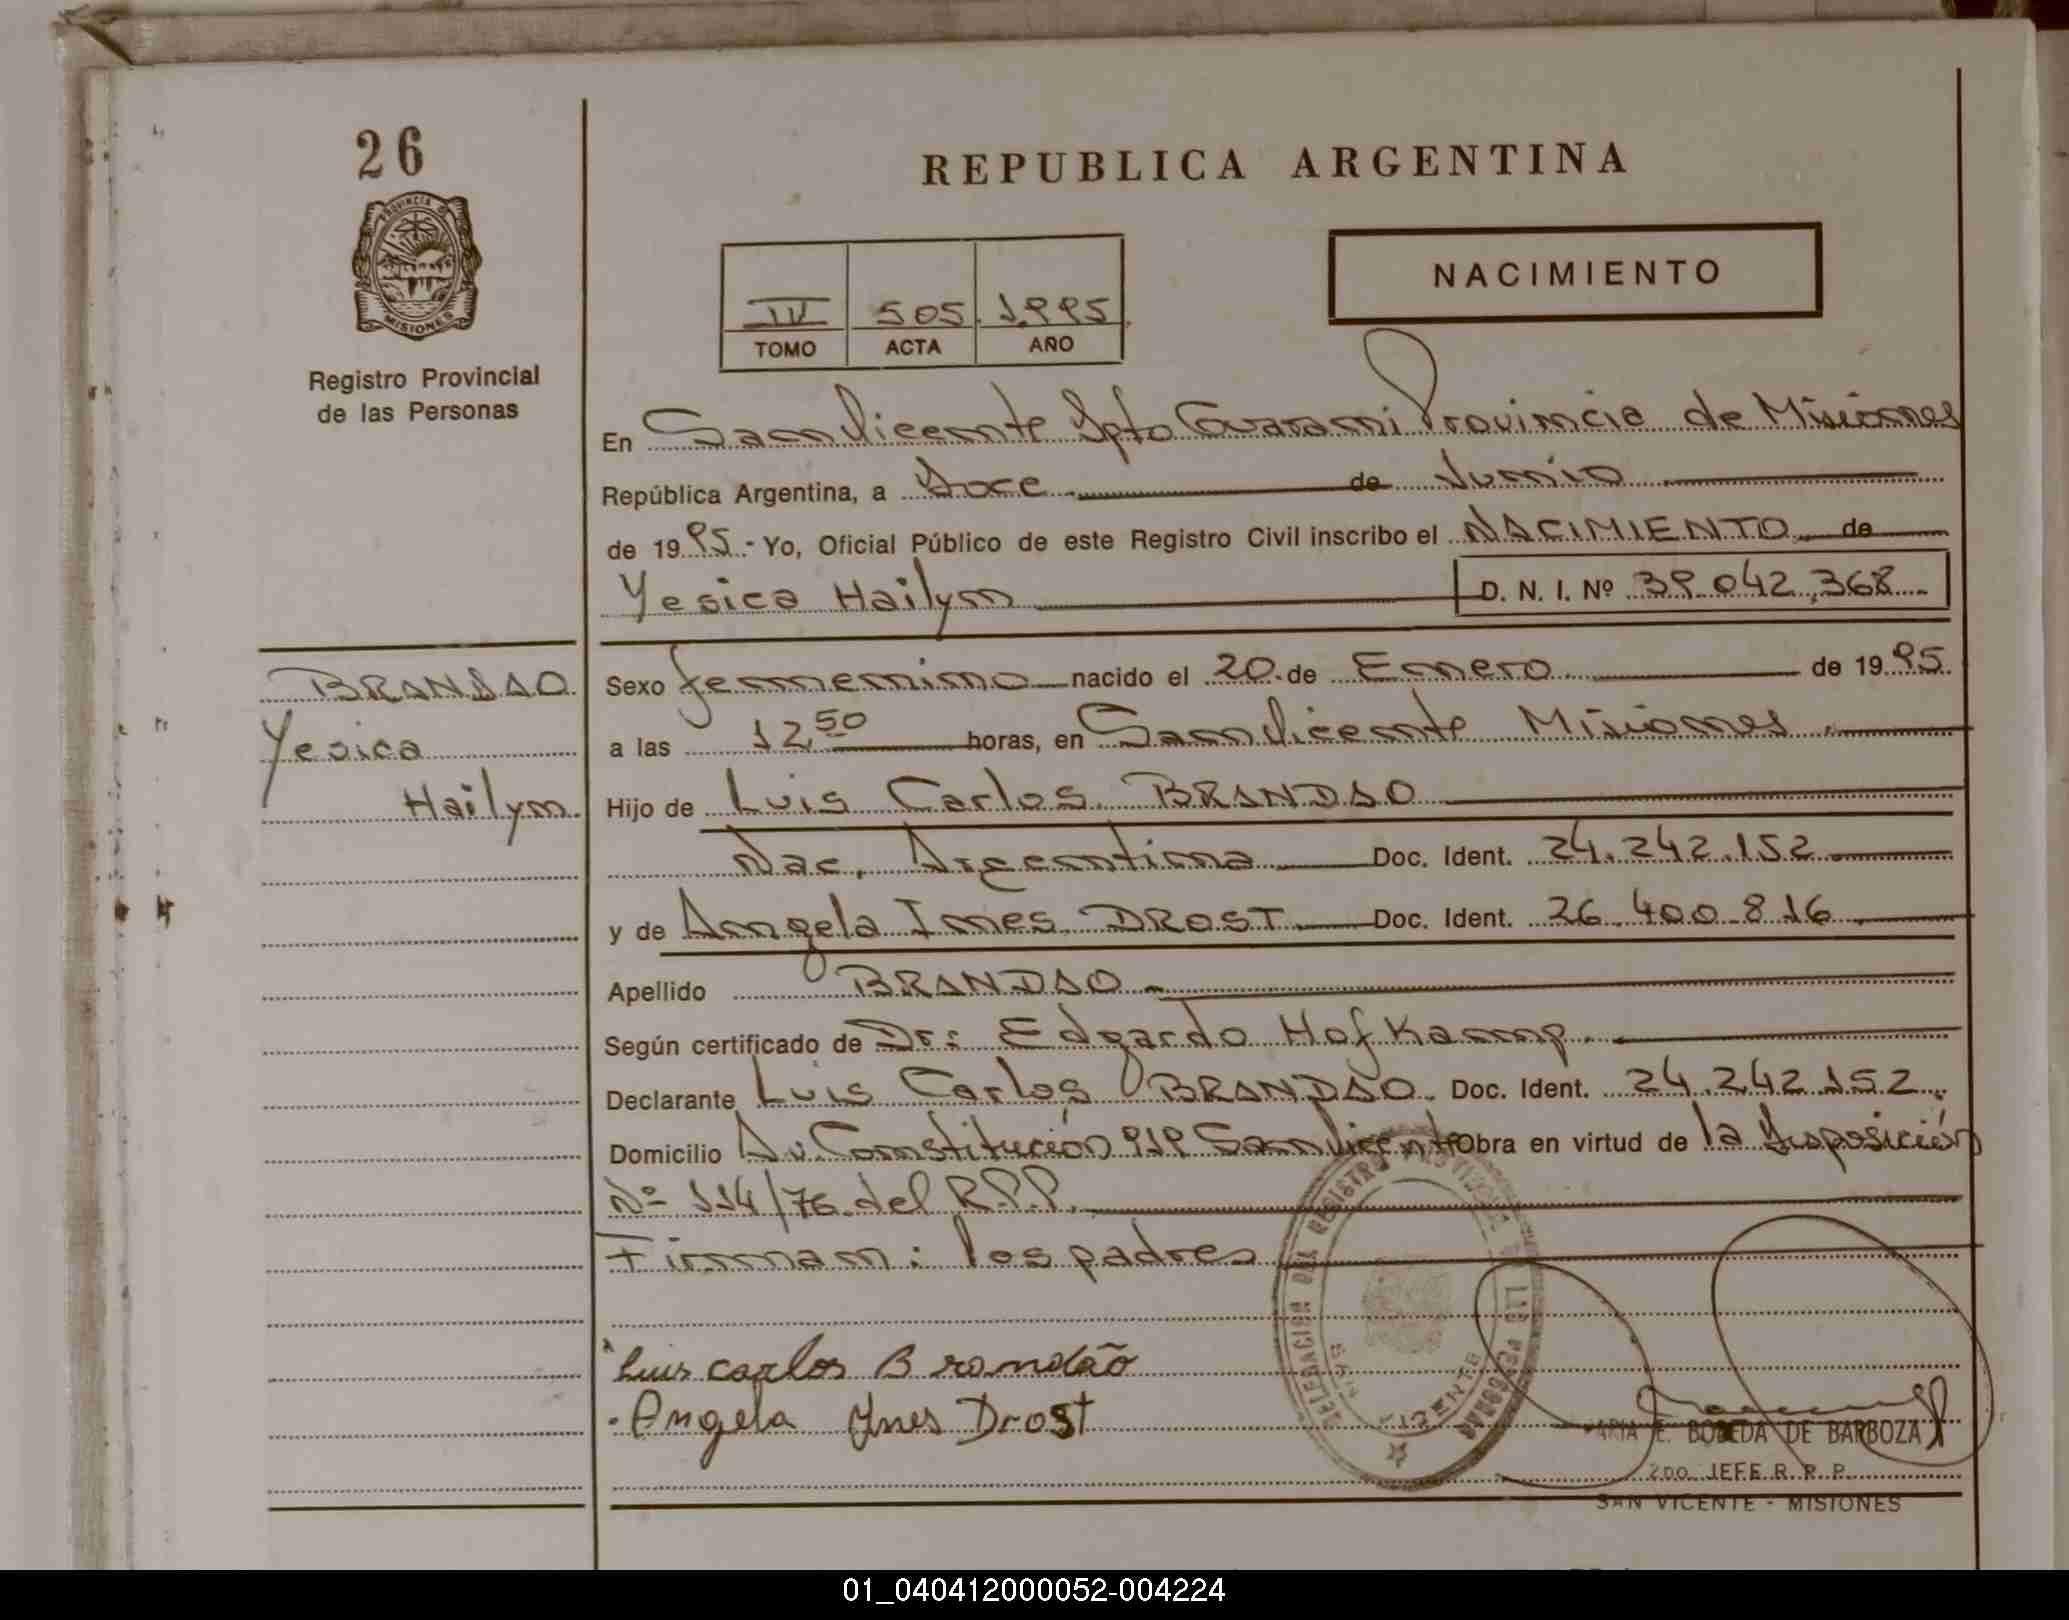 26
PROVINCIA D
MISIONES
Registro Provincial
de las Personas
REPUBLICA ARGENTINA
NACIMIENTO
IV 505 1995
TOMO ACTA AÑO
En San Vicente Dpto Guarani Provincia de Misiones
República Argentina, a Doce de Junio
de 1995.- Yo, Oficial Público de este Registro Civil inscribo el NACIMIENTO de
Yesica Hailyn D. N. I. Nº 39.042.368
BRANDAO
Yesica
Hailyn
Sexo femenino nacido el 20 de Enero de 1995
a las 12,50 horas, en San Vicente Misiones
Hijo de Luis Carlos BRANDAO
Nac. Argentina Doc. Ident. 24.242.152
y de Angela Ines DROST Doc. Ident. 26.400.816
Apellido BRANDAO
Según certificado de Dr: Edgardo Hof Kamp
Declarante Luis Carlos BRANDAO. Doc. Ident. 24.242.152
Domicilio Av. Constitución 919 San Vicente Obra en virtud de la Disposición
Nº 114/76 del R.P.P.
Firman: los padres
Luis carlos Brandão
Angela Ynes Drost
DELEGACION DEL REGISTRO PROVINCIAL DE LAS PERSONAS
SAN VICENTE
MARIA E. BOBEDA DE BARBOZA
2do. JEFE R. P. P.
SAN VICENTE - MISIONES
01_040412000052-004224